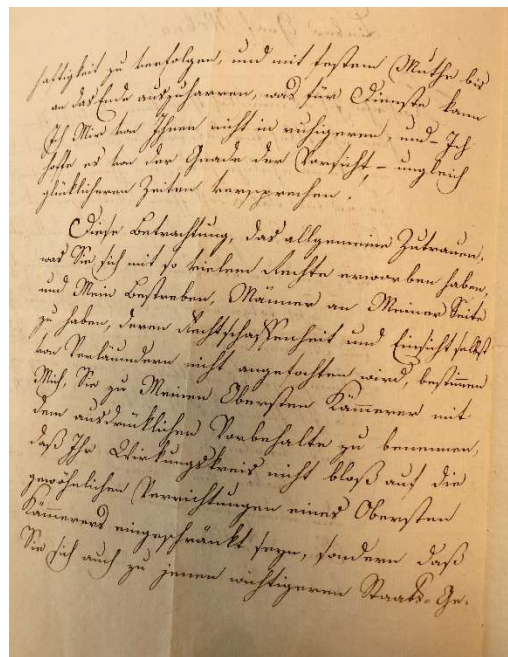 haftigkeit zu verfolgen, und mit festem Muthe bis
an das Ende auszuharren, was für Dienste kann
Ich Mir von Ihnen nicht in ruhigeren, und – Ich
hoffe es von der Gnade der Vorsicht, – ungleich
glücklicheren Zeiten versprechen.
Diese Betrachtung, das allgemeine Zutrauen,
was Sie sich mit so vielem Rechte erworben haben,
und Mein Bestreben, Männer an Meiner Seite
zu haben, deren Rechtschaffenheit und Einsicht selbst
von Verläumdern nicht angefochten wird, bestimmen
Mich, Sie zu Meinen Obersten Kämmerer mit
dem ausdrüklichen Vorbehalte zu benennen,
daß Ihr Wirkungskreis nicht bloß auf die
gewöhnlichen Verrichtungen eines Obersten
Kämmerers eingeschränkt seyn, sondern daß
Sie sich auch zu jenen wichtigeren Staats-Ge-